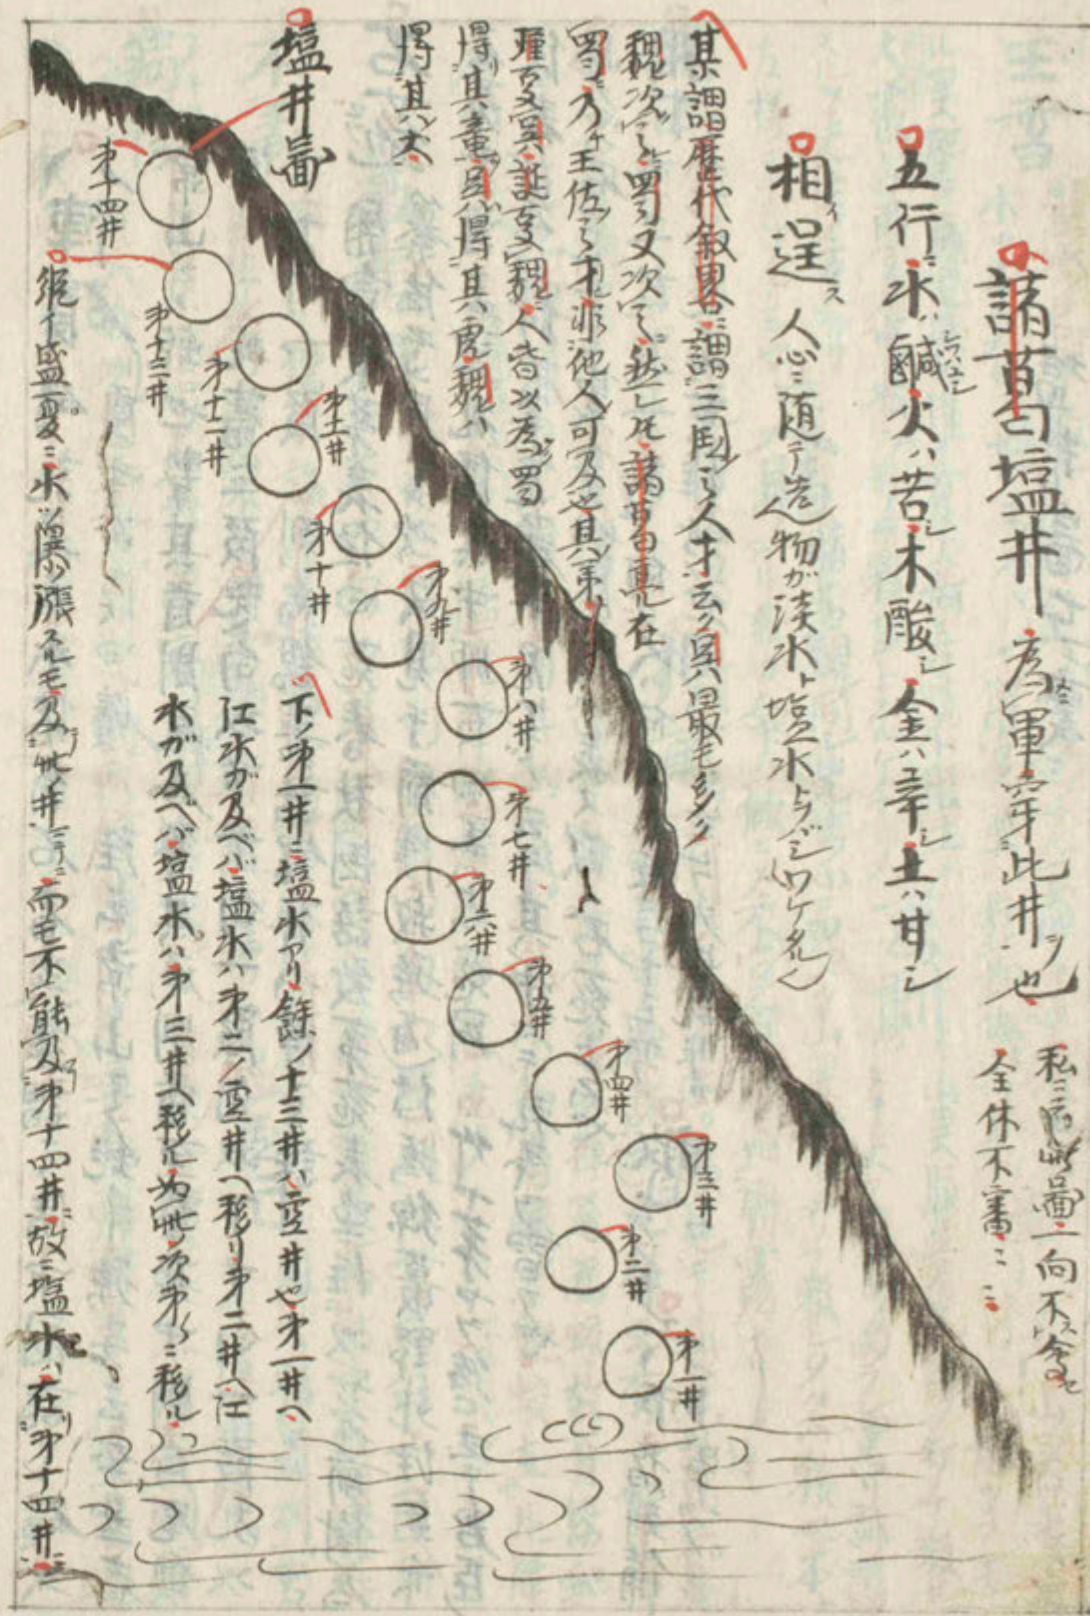 諸葛塩井 為軍穿此井ヲ也
私ニ云此啚一向不合セ
全体不審ニニ
五行ニ水ハ鹹シ火ハ苦シ木酸シ金ハ辛シ土ハ甘シ
相逞ス 人心ニ随テ造物ガ淡水ト塩水トヲ
某謂歴代叙畧ニ謂三国之人才云々呉ハ最モ多シ
魏次之蜀又次之然レ𪜈諸葛亮在
蜀乃チ王佐之才非他人可及也其弟
瑾在呉誕在魏人皆以為蜀
得其竜呉ハ得其虎魏ハ
得其犬
塩井啚
第十四井
第十三井
第十二井
第十一井
第十井
第九井
第八井
第七井
第六井
第五井
第四井
第三井
第二井
第一井
下ノ第一井ニ塩水アリ餘ノ十三井ハ空井也第一井ヘ
江水ガ及ベバ塩水ハ第二ノ空井ヘ移リ第二井ヘ江
水ガ及ベバ塩水ハ第三井ヘ移ル如此次第々ニ移ル
縦イ盛夏ニ水漲スルモ及此井ニ而モ不能及第十四井ニ故ニ塩水ハ在第十四井ニ